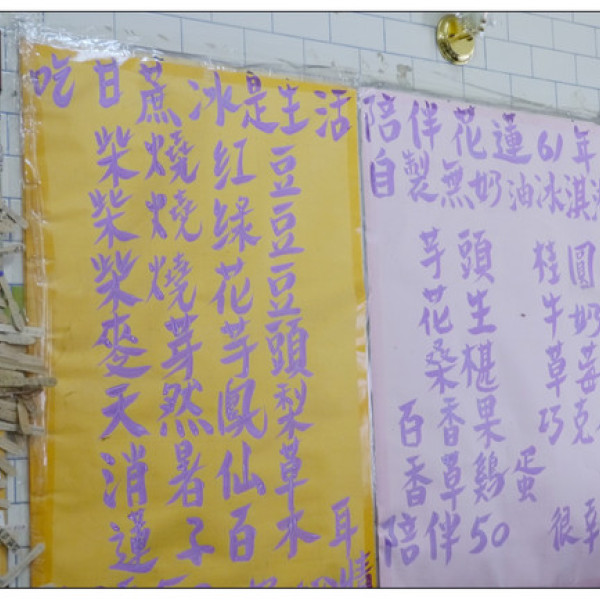 吃甘蔗冰是生活
柴燒紅豆
柴燒绿豆
柴燒花豆
麥芽芋頭
天然鳳梨
消暑仙草
蓮子百木耳
陪伴花蓮61年
自製無奶油冰淇淋
芋頭 桂圓
花生 牛奶
桑椹 草莓
百香果 巧克
香草鷄蛋
陪伴50 很